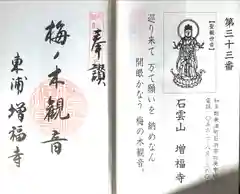 第三十三番
【聖観世音】
石雲山 増福寺
巡り来て 万て願いを 納めなん
開眼かなう 梅の木観音
奉讃
梅ノ木観音
東浦 増福寺